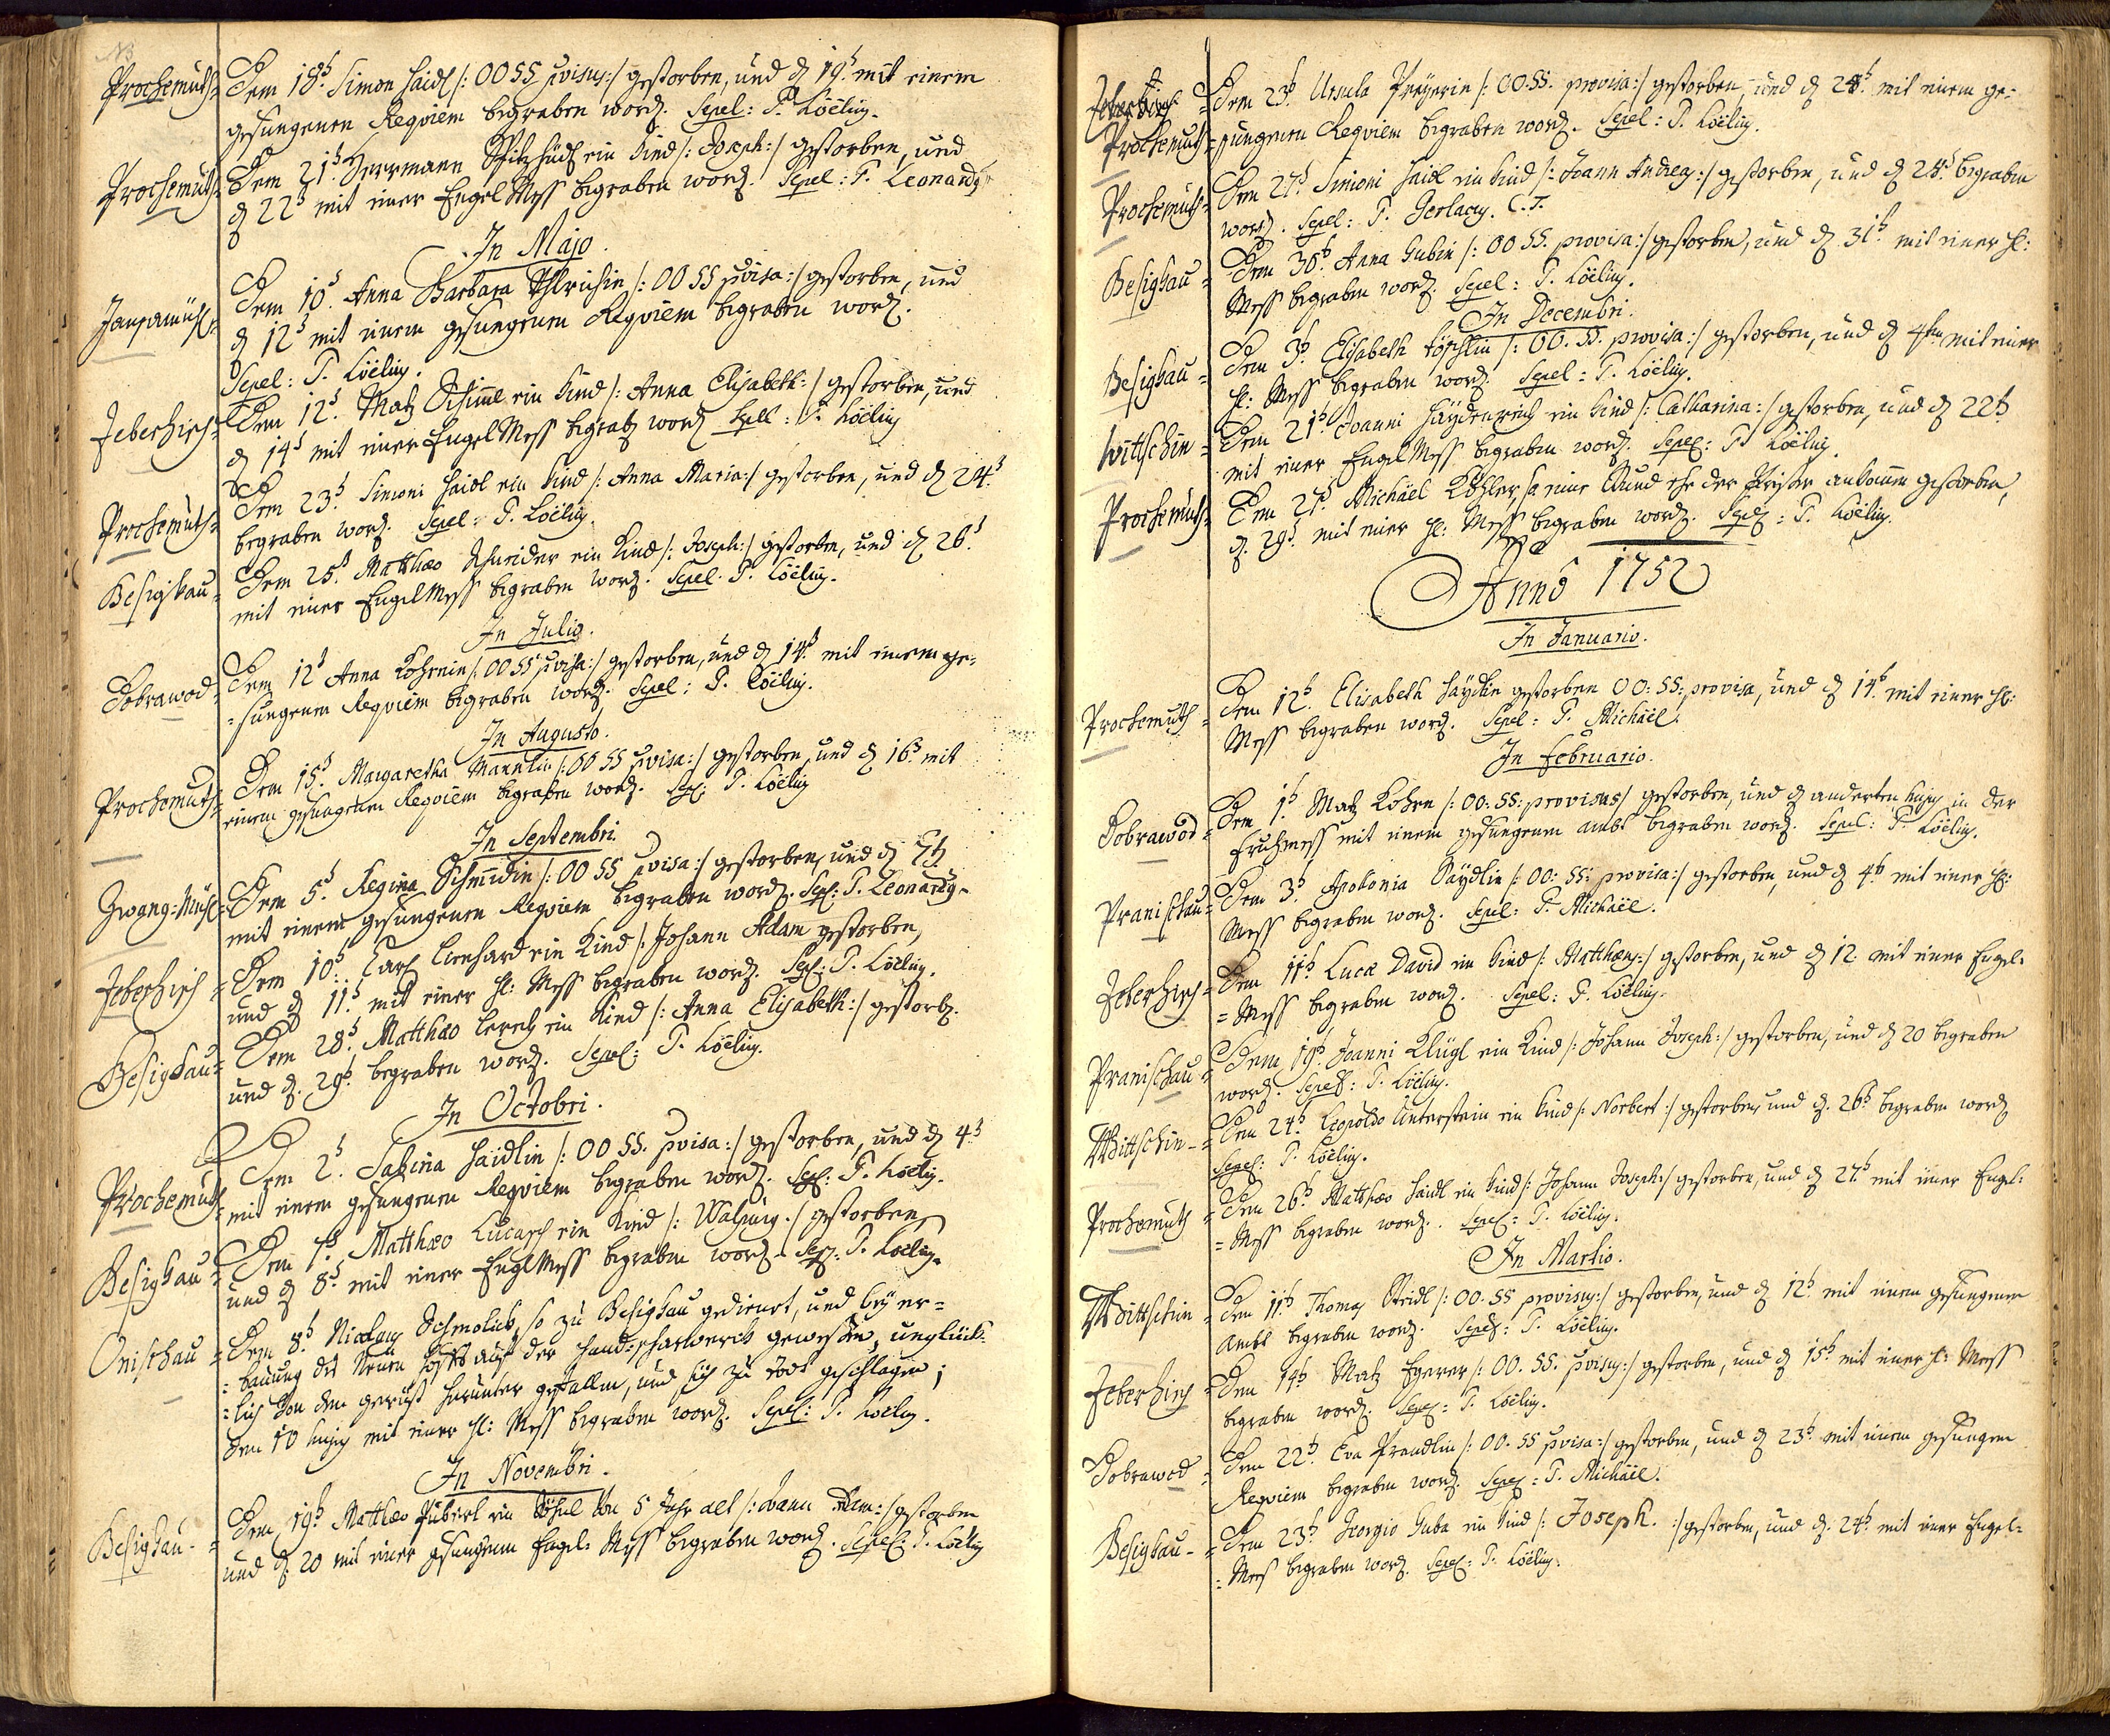 Prochomuth= Dem 18t Simon Haidl /: OO SS pvisus :/ gestorben, und d 19t mit einem
gesungenen Reqviem begraben word. Sepel: P. Löëlius.
Prochomuth= Dem 21t Herrmann ein Kind /: Joseph :/ gestorben, und
d 22t mit einer Engel Mess begraben word. Sepel: P. Leonardg
In Majo.
Dem 10t Anna Barbara /: OO SS pvisa :/ gestorben, und
d 12t mit einem gesungenen Reqviem begraben word.
Sepel: P. Löëlius.
Jeberhisch= Dem 12t Matz Schimml ein Kind /: Anna Elisabeth :/ gestorben, und
d 14t mit einer Engel Mess begrab word Sepel: P. Löëlius
Prochomuth= Dem 23t Simoni Haidl ein Kind /: Anna Maria :/ gestorben, und d 24t
begraben word. Sepel: P. Löëlius.
Besigkau= Dem 25t Matthæo Schneider ein Kind /: Joseph :/ gestorben, und d 26t
mit einer Engel Mess begraben word. Sepel. P. Löëlius.
In Julio.
Dobrawod= Dem 12t Anna Kohrnin /: OO SS pvisa :/ gestorben, und d 14t mit einem ge=
=sungenen Reqviem begraben word. Sepel: P. Löëlius.
In Augusto.
Prochomuth= Dem 15t Margaretha Mannlin /: OO SS pvisa :/ gestorben, und d 16t mit
einem gesungenen Reqviem begraben word. Sepel: P. Löëlius
In Septembri.
Zwang=Mühl= Dem 5t Regina Schmidin /: OO SS pvisa :/ gestorben, und d 7t
mit einem gesungenen Reqviem begraben word. Sepel: P. Leonardg
Jeberhisch= Dem 10t Carl Lienhard ein Kind /: Johann Adam gestorben,
und d 11t mit einer hl: Mess begraben word. Sepel: P. Löëlius.
Besigkau= Dem 28t Matthæo Lerch ein Kind /: Anna Elisabeth :/ gestorb.
und d. 29t begraben word. Sepel: P. Löëlius.
In Octobri.
Prochomuth= Dem 2t Sabina Haidlin /: OO SS. pvisa :/ gestorben, und d 4t
mit einem gesungenen Reqviem begraben word. Sepel: P. Löëlius.
Besigkau= Dem 7t Matthæo Lucasch ein Kind /: Walpurg :/ gestorben
und d 8t mit einer Engl Mess begraben word. Sepel: P. Löëlius.
Onischau= Dem 8t Nicolaus Schmolick, so zu Besigkau gedienet, und bey er=
=bauung des Neuen Hoffs auf der gewesen, unglück=
=lich von dem gerüst herunter gefallen, und sich zu todt geschlagen;
den 10 hujus mit einer hl: Mess begraben word. Sepel: P. Löëlius.
In Novembri.
Besigkau= Dem 19t Matthæo ein Söhnl von 5 Jahr alt /: Joann Adam :/ gestorben
und d. 20 mit einer gesungenen Engel= Mess begraben word. Sepel: P. Löëlius
Dem 23t Ursula Preyerin /: OO. SS. provisa :/ gestorben, und d 24t mit einem ge=
Prochomuth =sungenen Reqviem begraben word. Sepel: P. Löëlius.
Prochomuth= Dem 27t Simoni Haidl ein Kind /: Joann Andreas :/ gestorben, und d 28t begraben
word. Sepel: P. Gerlacus. C. T.
Besigkau= Dem 30t Anna Gubin /: OO SS. provisa :/ gestorben, und d 31t mit einer hl:
Mess begraben word. Sepel: P. Löëlius.
In Decembri.
Besigkau= Dem 3t Elisabeth Töpschlin /: OO. SS. provisa :/ gestorben, und d 4ten mit einer
hl: Mess begraben word. Sepel: P. Löëlius.
Wittschin= Dem 21t Joanni Haydenreich ein Kind /: Catharina :/ gestorben, und d 22t
mit einer Engel Mess begraben word. Sepel: P. Löëlius.
Prochomuth= Dem 27t Michäel Köhler eine Stund ehe der Prister ankomm gestorben,
d. 29t mit einer hl: Mess begraben word. Sepel: P. Löëlius.
Anno 1752
In Januario.
Prochomuth= Dem 12t Elisabeth Haydlin gestorben OO: SS: provisa, und d 14t mit einer hl:
Mess begraben word. Sepel: P. Michäel.
In Februario.
Dobrawod= Dem 1t Matz Kohrn /: OO. SS: provisus / gestorben, und d anderten hujus in der
Fruhmess mit einem gesungenem ambt begraben word. Sepel: P. Löëlius.
Pranischau= Dem 3t Apolonia Saydlin /: OO: SS: provisa :/ gestorben, und d 4t mit einer hl:
Mess begraben word. Sepel: P. Michäel.
Jeberhisch= Dem 11t Luca David ein Kind /: Matthæus :/ gestorben, und d 12. mit einer Engel=
=Mess begraben word. Sepel: P. Löëlius.
Pranischau= Dem 19t Joanni Klügl ein Kind /: Johann Joseph :/ gestorben, und d 20 begraben
word. Sepel: P. Löëlius.
Wittschin= Dem 24t Leopoldo Unterstein ein Kind /: Norbert :/ gestorben, und d. 26t begraben word
Sepel: P. Löëlius.
Prochomuth= Dem 26t Matthæo Haidl ein Kind /: Johann Joseph :/ gestorben, und d 27t mit einer Engel=
=Mess begraben word. Sepel: P. Löëlius.
In Martio.
Wittschin= Dem 11t Thomas Steidl /: OO. SS provisus :/ gestorben, und d 12t mit einem gesungenen
ambt begraben word. Sepel: P. Löëlius.
Jeberhisch= Dem 14t Matz Egerer /: OO. SS. pvisus :/ gestorben, und d 15t mit einer hl: Mess
begraben word. Sepel: P. Löëlius.
Dobrawod= Dem 22t Eva Prandlin /: OO. SS pvisa :/ gestorben, und d 23t mit einem gesungen
Reqviem begraben word. Sepel: P. Michäel.
Besigkau= Dem 23t Georgio Guba ein Kind /: Joseph. :/ gestorben, und d. 24t mit einer Engel=
=Mess begraben word. Sepel: P. Löëlius.